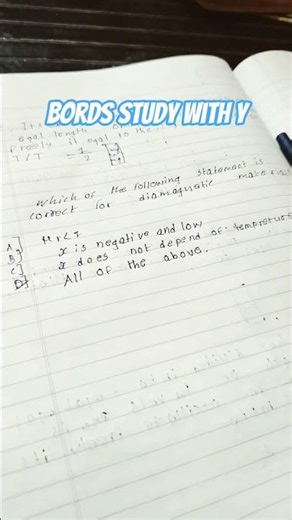 BORDS STUDY WITH Y
egal length
freely it egal to the
T / T = 1/2
which of the following statement is
correct for diamagnetic
A] μr<1
B] x is negative and low
C] x does not depend of tempreture
D] All of the above.